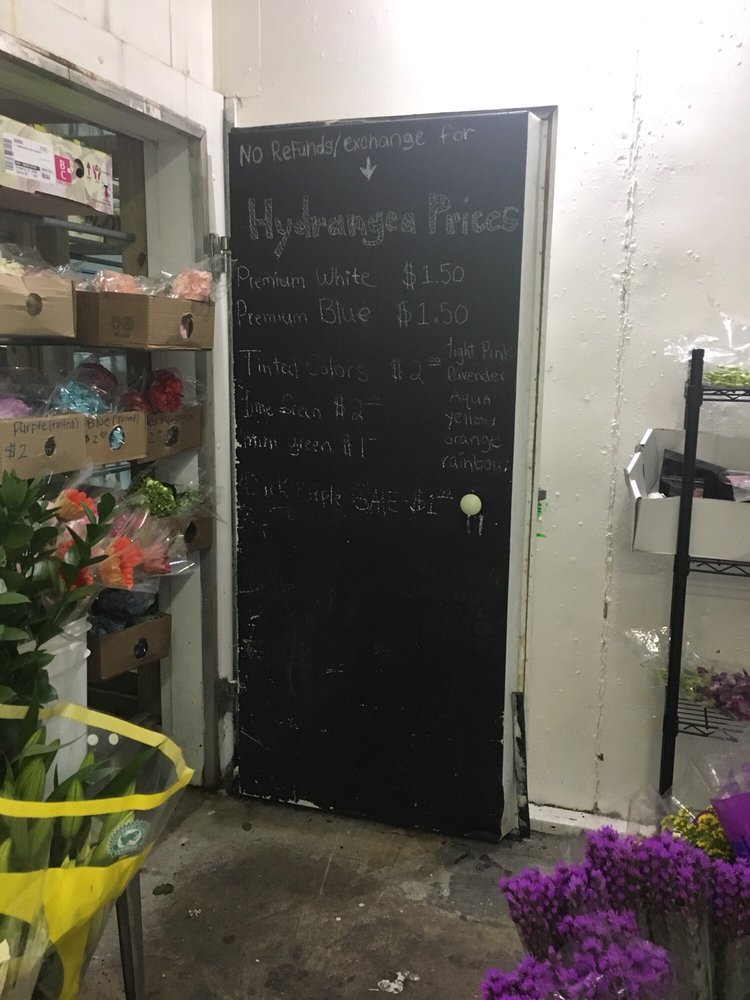 No Refunds/exchange for
Hydrangea Prices
Premium White $1.50
Premium Blue $1.50
Tinted Colors $2.00
light Pink
lavender
Aqua
yellow
orange
rainbow
lime Green $2.00
mini green $1
Dark Purple SALE $1.00
Purple (tinted)
$2
Blue (Tinted)
$2
B
C